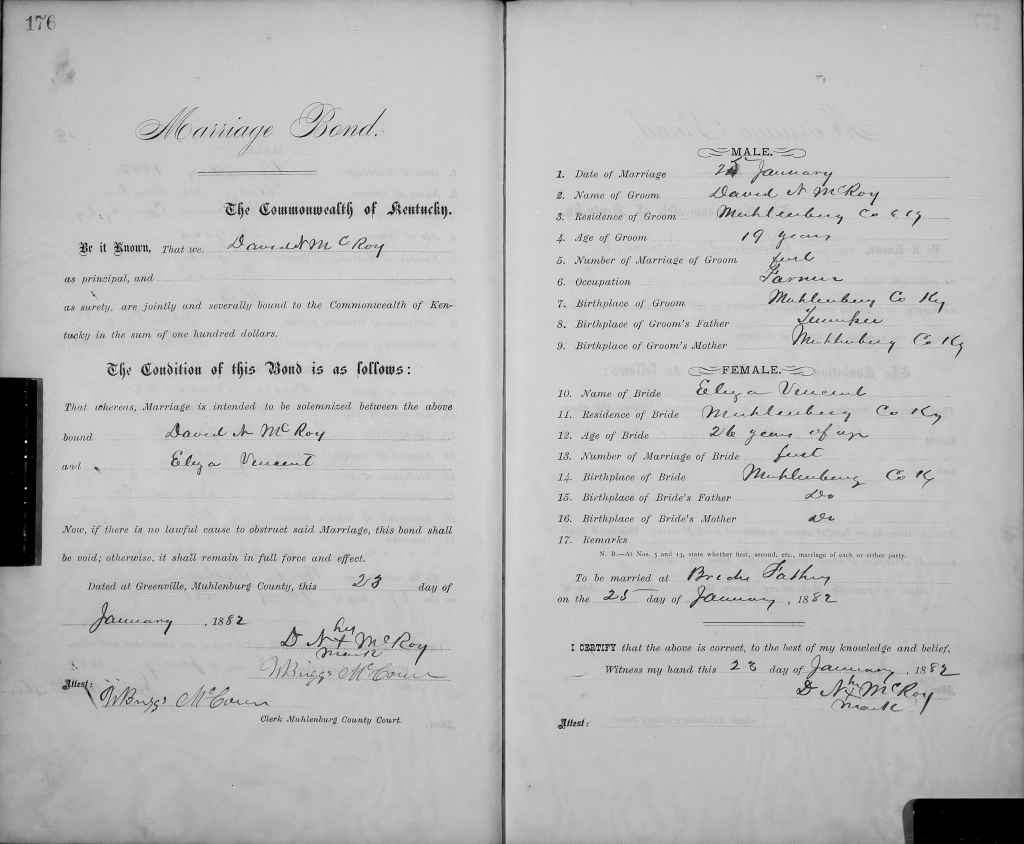 176
Marriage Bond.
The Commonwealth of Kentucky.
Be it Known, That we. David N McRoy
as principal, and
as surety, are jointly and severally bound to the Commonwealth of Ken-
tucky in the sum of one hundred dollars.
The Condition of this Bond is as follows:
That whereas, Marriage is intended to be solemnized between the above
bound David N McRoy
and Eliza Vincent
Now, if there is no lawful cause to obstruct said Marriage, this bond shall
be void; otherwise, it shall remain in full force and effect.
Dated at Greenville, Muhlenburg County, this 23 day of
January, 1882
his
D N + McRoy
mark
W Briggs McCown
Attest:
W Briggs McCown
Clerk Muhlenburg County Court.
177
MALE.
1. Date of Marriage 25 January
2. Name of Groom David N McRoy
3. Residence of Groom Muhlenburg Co Ky
4. Age of Groom 19 years
5. Number of Marriage of Groom first
6. Occupation Farmer
7. Birthplace of Groom Muhlenburg Co Ky
8. Birthplace of Groom's Father
9. Birthplace of Groom's Mother Muhlenburg Co Ky
FEMALE.
10. Name of Bride Eliza Vincent
11. Residence of Bride Muhlenburg Co Ky
12. Age of Bride 26 years of age
13. Number of Marriage of Bride first
14. Birthplace of Bride Muhlenburg Co Ky
15. Birthplace of Bride's Father Do
16. Birthplace of Bride's Mother Do
17. Remarks
N. B.—At Nos. 5 and 13, state whether first, second, etc., marriage of each or either party.
To be married at Brides Fathers
on the 25 day of January, 1882
I CERTIFY that the above is correct, to the best of my knowledge and belief.
Witness my hand this 23 day of January, 1882
his
D N + McRoy
mark
Attest: